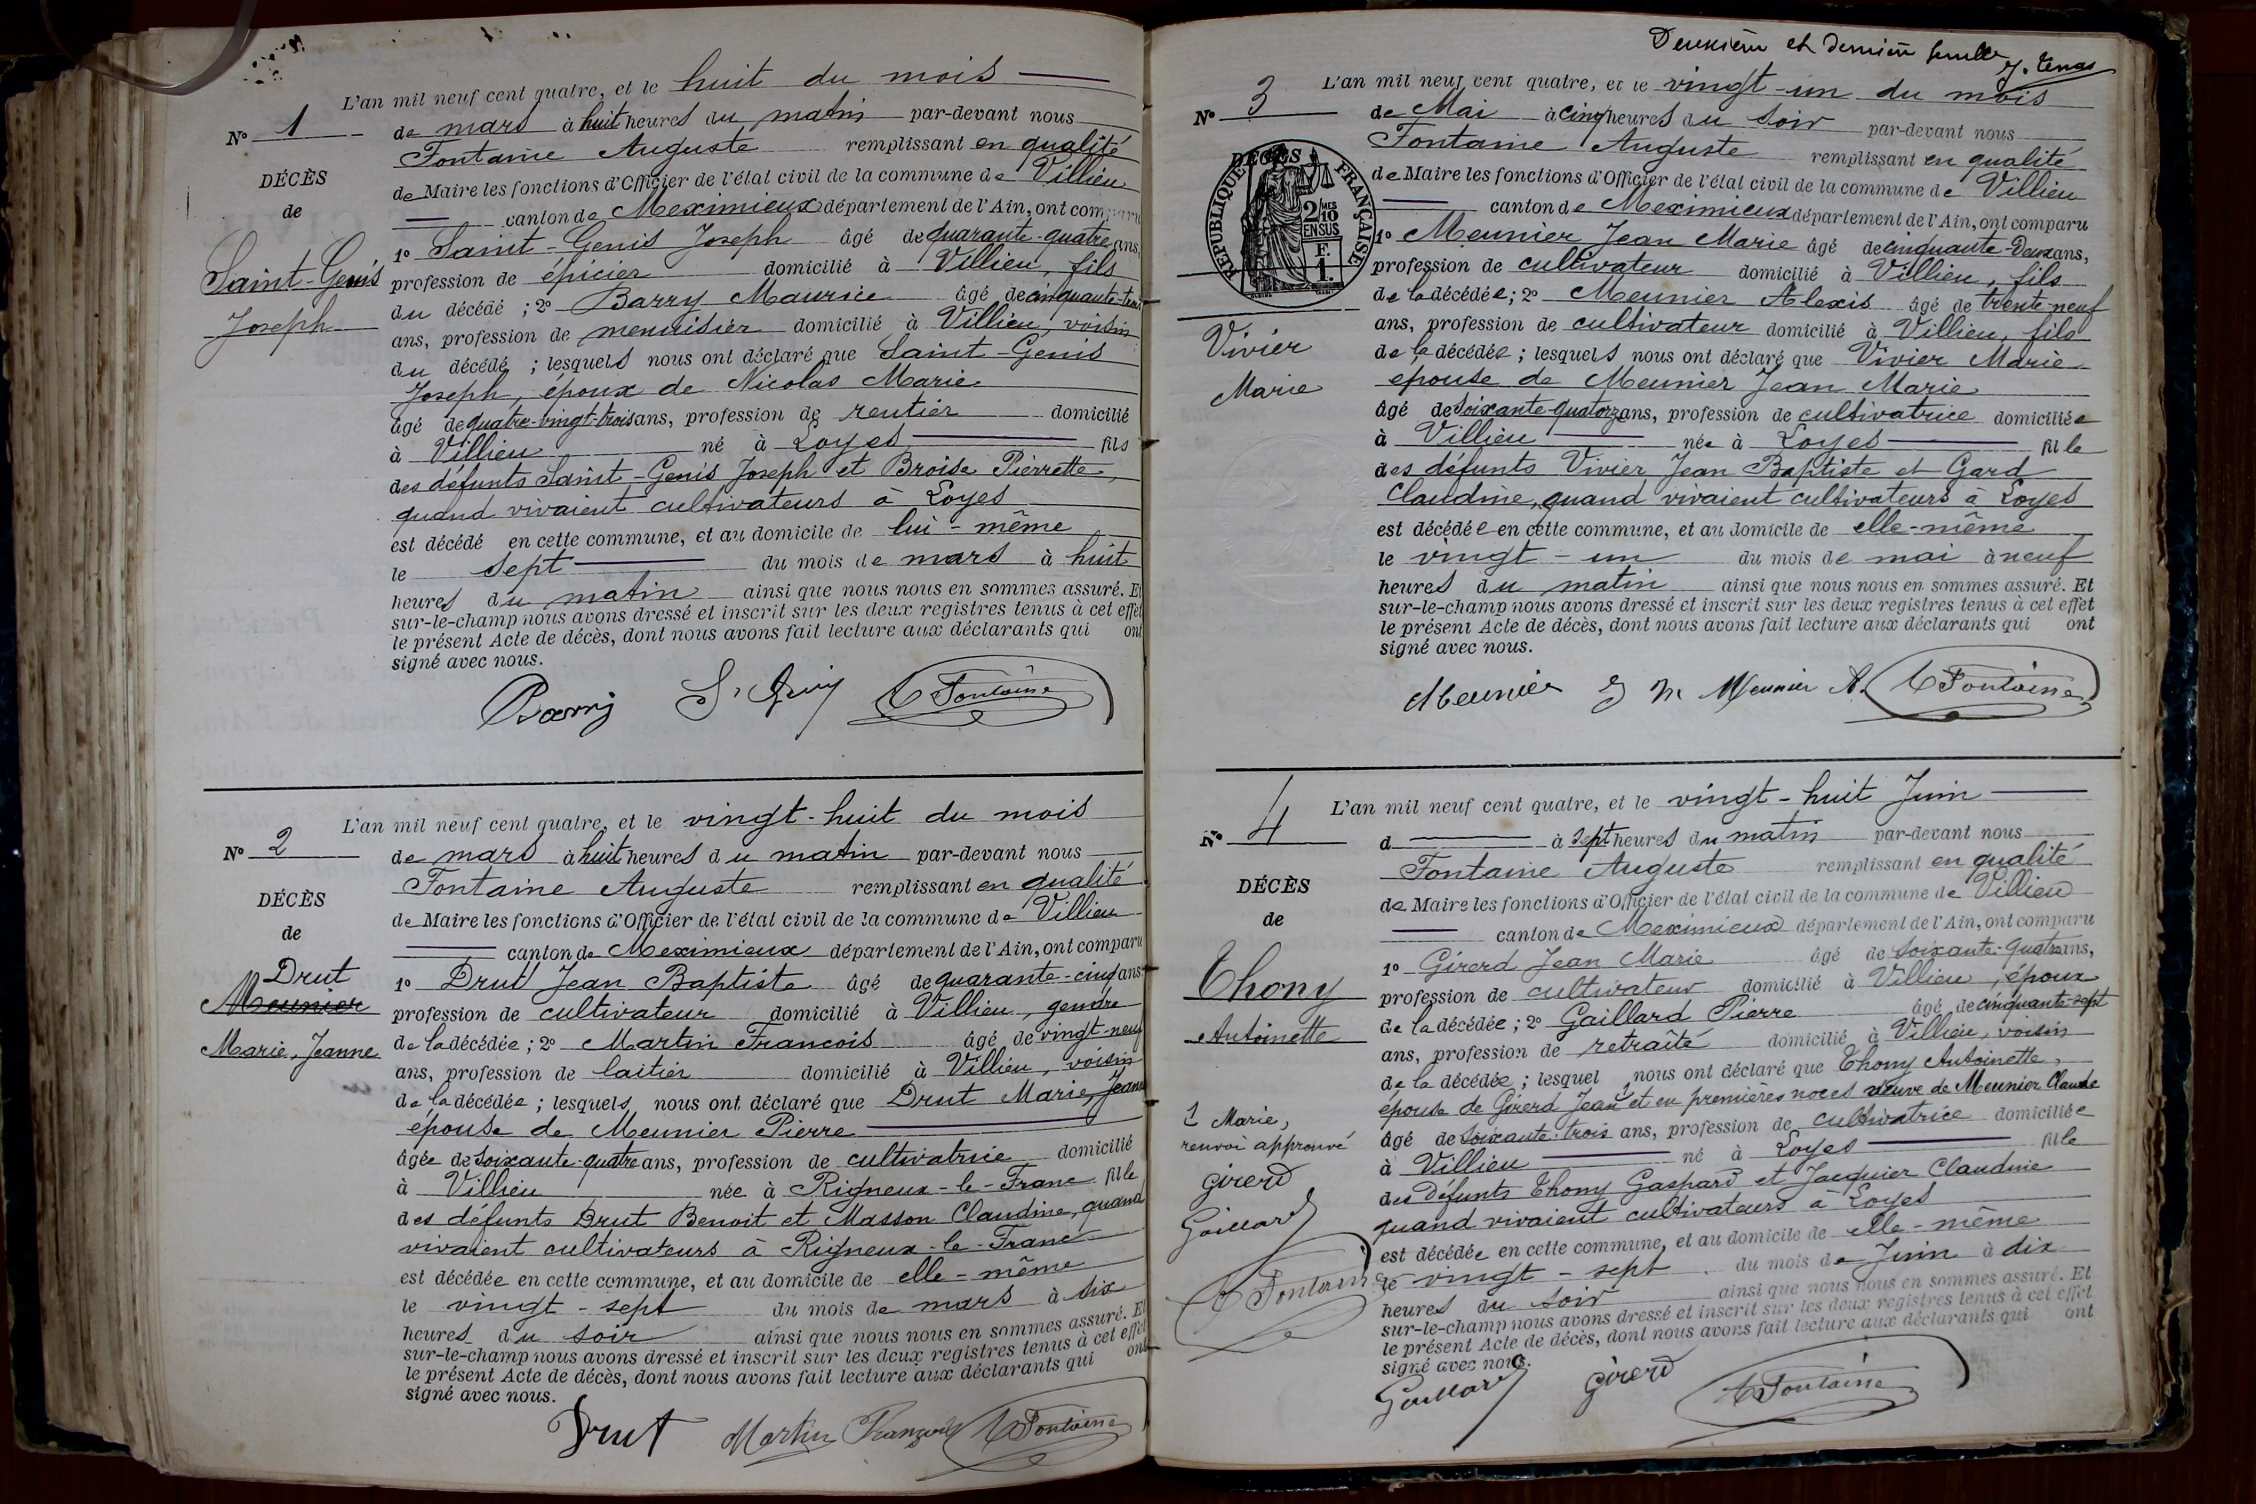 L'an mil neuf cent quatre, et le huit du mois
No 1
de mars à huit heures du matin par-devant nous
Fontaine Auguste remplissant en qualité
DÉCÈS
de Maire les fonctions d'Officier de l'état civil de la commune de Villieu
de
canton de Meximieux département de l'Ain, ont comparu
Saint-Genis
Joseph
1o Saint-Genis Joseph âgé de quarante-quatre ans,
profession de épicier domicilié à Villieu, fils
du décédé ; 2o Barry Maurice âgé de cinquante-
ans, profession de menuisier domicilié à Villieu, voisin
du décédé ; lesquels nous ont déclaré que Saint-Genis
Joseph, époux de Nicolas Marie
âgé de quatre-vingt-trois ans, profession de rentier domicilié
à Villieu né à Loyes fils
des défunts Saint-Genis Joseph et Broise Pierrette,
quand vivaient cultivateurs à Loyes
est décédé en cette commune, et au domicile de lui-même
le sept du mois de mars à huit
heures du matin ainsi que nous nous en sommes assuré. Et
sur-le-champ nous avons dressé et inscrit sur les deux registres tenus à cet effet
le présent Acte de décès, dont nous avons fait lecture aux déclarants qui ont
signé avec nous.
Barry St Genis A Fontaine
L'an mil neuf cent quatre, et le vingt-huit du mois
No 2
de mars à huit heures du matin par-devant nous
Fontaine Auguste remplissant en qualité
DÉCÈS
de Maire les fonctions d'Officier de l'état civil de la commune de Villieu
de
canton de Meximieux département de l'Ain, ont comparu
Drut
Meunier
Marie, Jeanne
1o Drut Jean Baptiste âgé de quarante-cinq ans
profession de cultivateur domicilié à Villieu, gendre
de la décédée ; 2o Martin Francois âgé de vingt-neuf
ans, profession de laitier domicilié à Villieu, voisin
de la décédée ; lesquels nous ont déclaré que Drut Marie, Jeanne
épouse de Meunier Pierre
âgée de soixante-quatre ans, profession de cultivatrice domicilié
à Villieu née à Rigneux-le-Franc fille
des défunts Drut Benoit et Masson Claudine, quand
vivaient cultivateurs à Rigneux-le-Franc
est décédée en cette commune, et au domicile de elle-même
le vingt-sept du mois de mars à six
heures du soir ainsi que nous nous en sommes assuré. Et
sur-le-champ nous avons dressé et inscrit sur les deux registres tenus à cet effet
le présent Acte de décès, dont nous avons fait lecture aux déclarants qui ont
signé avec nous.
Drut Martin François A Fontaine
Deuxième et dernière feuille
J. Tenas
L'an mil neuf cent quatre, et le vingt-un du mois
No 3
de Mai à cinq heures du soir par-devant nous
Fontaine Auguste remplissant en qualité
DÉCÈS
RÉPUBLIQUE FRANÇAISE
2/10 MES
EN SUS
F.
1.
de Maire les fonctions d'Officier de l'état civil de la commune de Villieu
canton de Meximieux département de l'Ain, ont comparu
Vivier
Marie
1o Meunier Jean Marie âgé de cinquante-Deux ans,
profession de cultivateur domicilié à Villieu, fils
de la décédée ; 2o Meunier Alexis âgé de trente-neuf
ans, profession de cultivateur domicilié à Villieu, fils
de la décédée ; lesquels nous ont déclaré que Vivier Marie
épouse de Meunier Jean Marie
âgé de soixante-quatorze ans, profession de cultivatrice domiciliée
à Villieu née à Loyes fille
des défunts Vivier Jean Baptiste et Gard
Claudine, quand vivaient cultivateurs à Loyes
est décédée en cette commune, et au domicile de elle-même
le vingt-un du mois de mai à neuf
heures du matin ainsi que nous nous en sommes assuré. Et
sur-le-champ nous avons dressé et inscrit sur les deux registres tenus à cet effet
le présent Acte de décès, dont nous avons fait lecture aux déclarants qui ont
signé avec nous.
Meunier J M Meunier A. A Fontaine
L'an mil neuf cent quatre, et le vingt-huit Juin
No 4
d à sept heures du matin par-devant nous
Fontaine Auguste remplissant en qualité
DÉCÈS
de Maire les fonctions d'Officier de l'état civil de la commune de Villieu
de
canton de Meximieux département de l'Ain, ont comparu
Thony
Antoinette
1o Girerd Jean Marie âgé de soixante-quatre ans,
profession de cultivateur domicilié à Villieu, époux
de la décédée ; 2o Gaillard Pierre âgé de cinquante-sept
ans, profession de retraité domicilié à Villieu, voisin
de la décédée ; lesquel nous ont déclaré que Thony Antoinette,
épouse de Girerd Jean 1 et en premières noces veuve de Meunier Claude
âgé de soixante-trois ans, profession de cultivatrice domiciliée
à Villieu né à Loyes fille
des défunts Thony Gaspard et Jacquier Claudine
quand vivaient cultivateurs à Loyes
est décédée en cette commune, et au domicile de elle-même
le vingt-sept du mois de Juin à dix
heures du soir ainsi que nous nous en sommes assuré. Et
sur-le-champ nous avons dressé et inscrit sur les deux registres tenus à cet effet
le présent Acte de décès, dont nous avons fait lecture aux déclarants qui ont
signé avec nous.
1 Marie,
renvoi approuvé
Girerd
Gaillard
A Fontaine
Gaillard Girerd A Fontaine